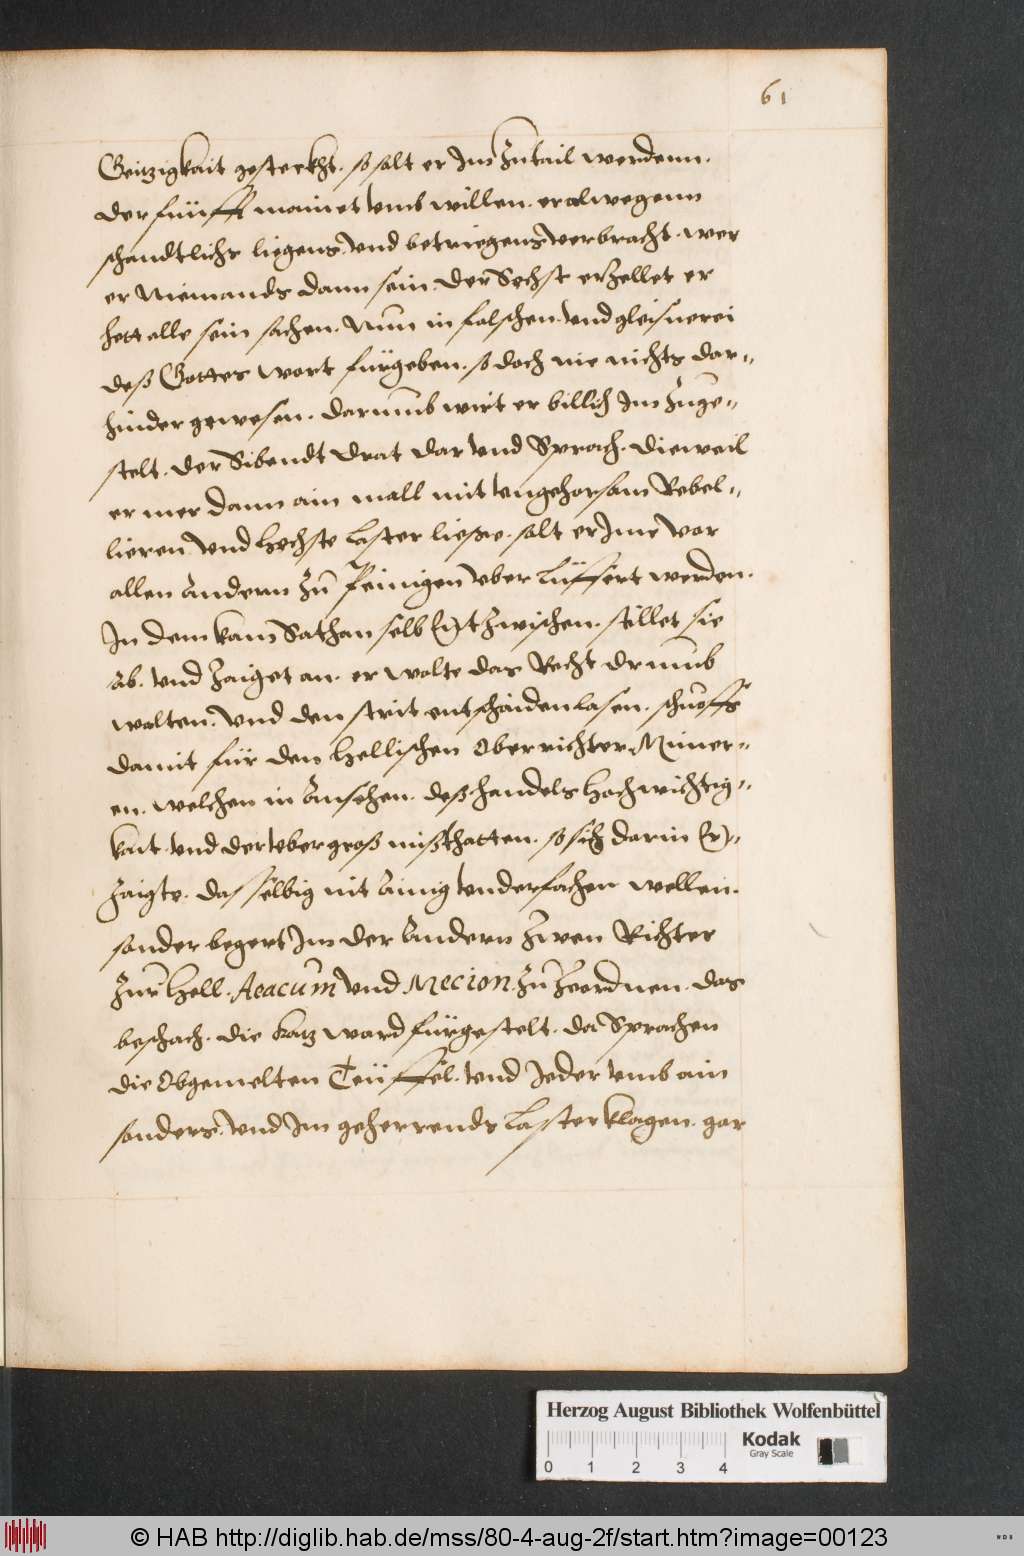 61
Geitzigkait gesteckht. so solt er Im Zutail werdenn.
Der fünfft mainet vmb willen. er alwegenn
schandtlichs liegens, vnd betriegens, verbracht. wer
er Niemands dann sein. Der Sechst erzellet er
hett alle sein sachen. Nun in falschen. vnd gleisnerei
deß Gottes wort fürgeben. so doch nie nichts dar-
hinder gewesen. Darumb wirt er billich Im Zuge-
stelt. Der Sibendt Drat dar vnd Sprach. Dieweil
er mer dann ain mall mit vngehorsam Rebel-
lieren vnd hechste Laster ließe. solt er Ime vor
allen Andern zu Peinigen vber lüffert werden.
In dem kam Sathan selb (r)t zwischen. stillet sie
Ab. vnd zaiget an. er wolte das Recht drumb
walten. vnd den strit entschaiden lasen. schueffs
damit für den Hellischen Oberrichter Miner-
en. welchen in Ansehen. deß handels hochwichtig-
kait vnd der vbergroß mißthatten. so sich darin (er)-
zaigte. das selbig nit Ainig vnderfachen wellen.
sonder begert Im der Andern Zwen Richter
zur Hell. Aeacum vnd Mecion. zu Zeordnen. das
beschach. die Katz ward fürgestelt. da Sprachen
die Obgemelten Teüffel. vnd Jeder vmb ain
sonders, vnd Im geherrends Laster klagen. gar
Herzog August Bibliothek Wolfenbüttel
Kodak
Gray Scale
0 1 2 3 4
© HAB http://diglib.hab.de/mss/80-4-aug-2f/start.htm?image=00123